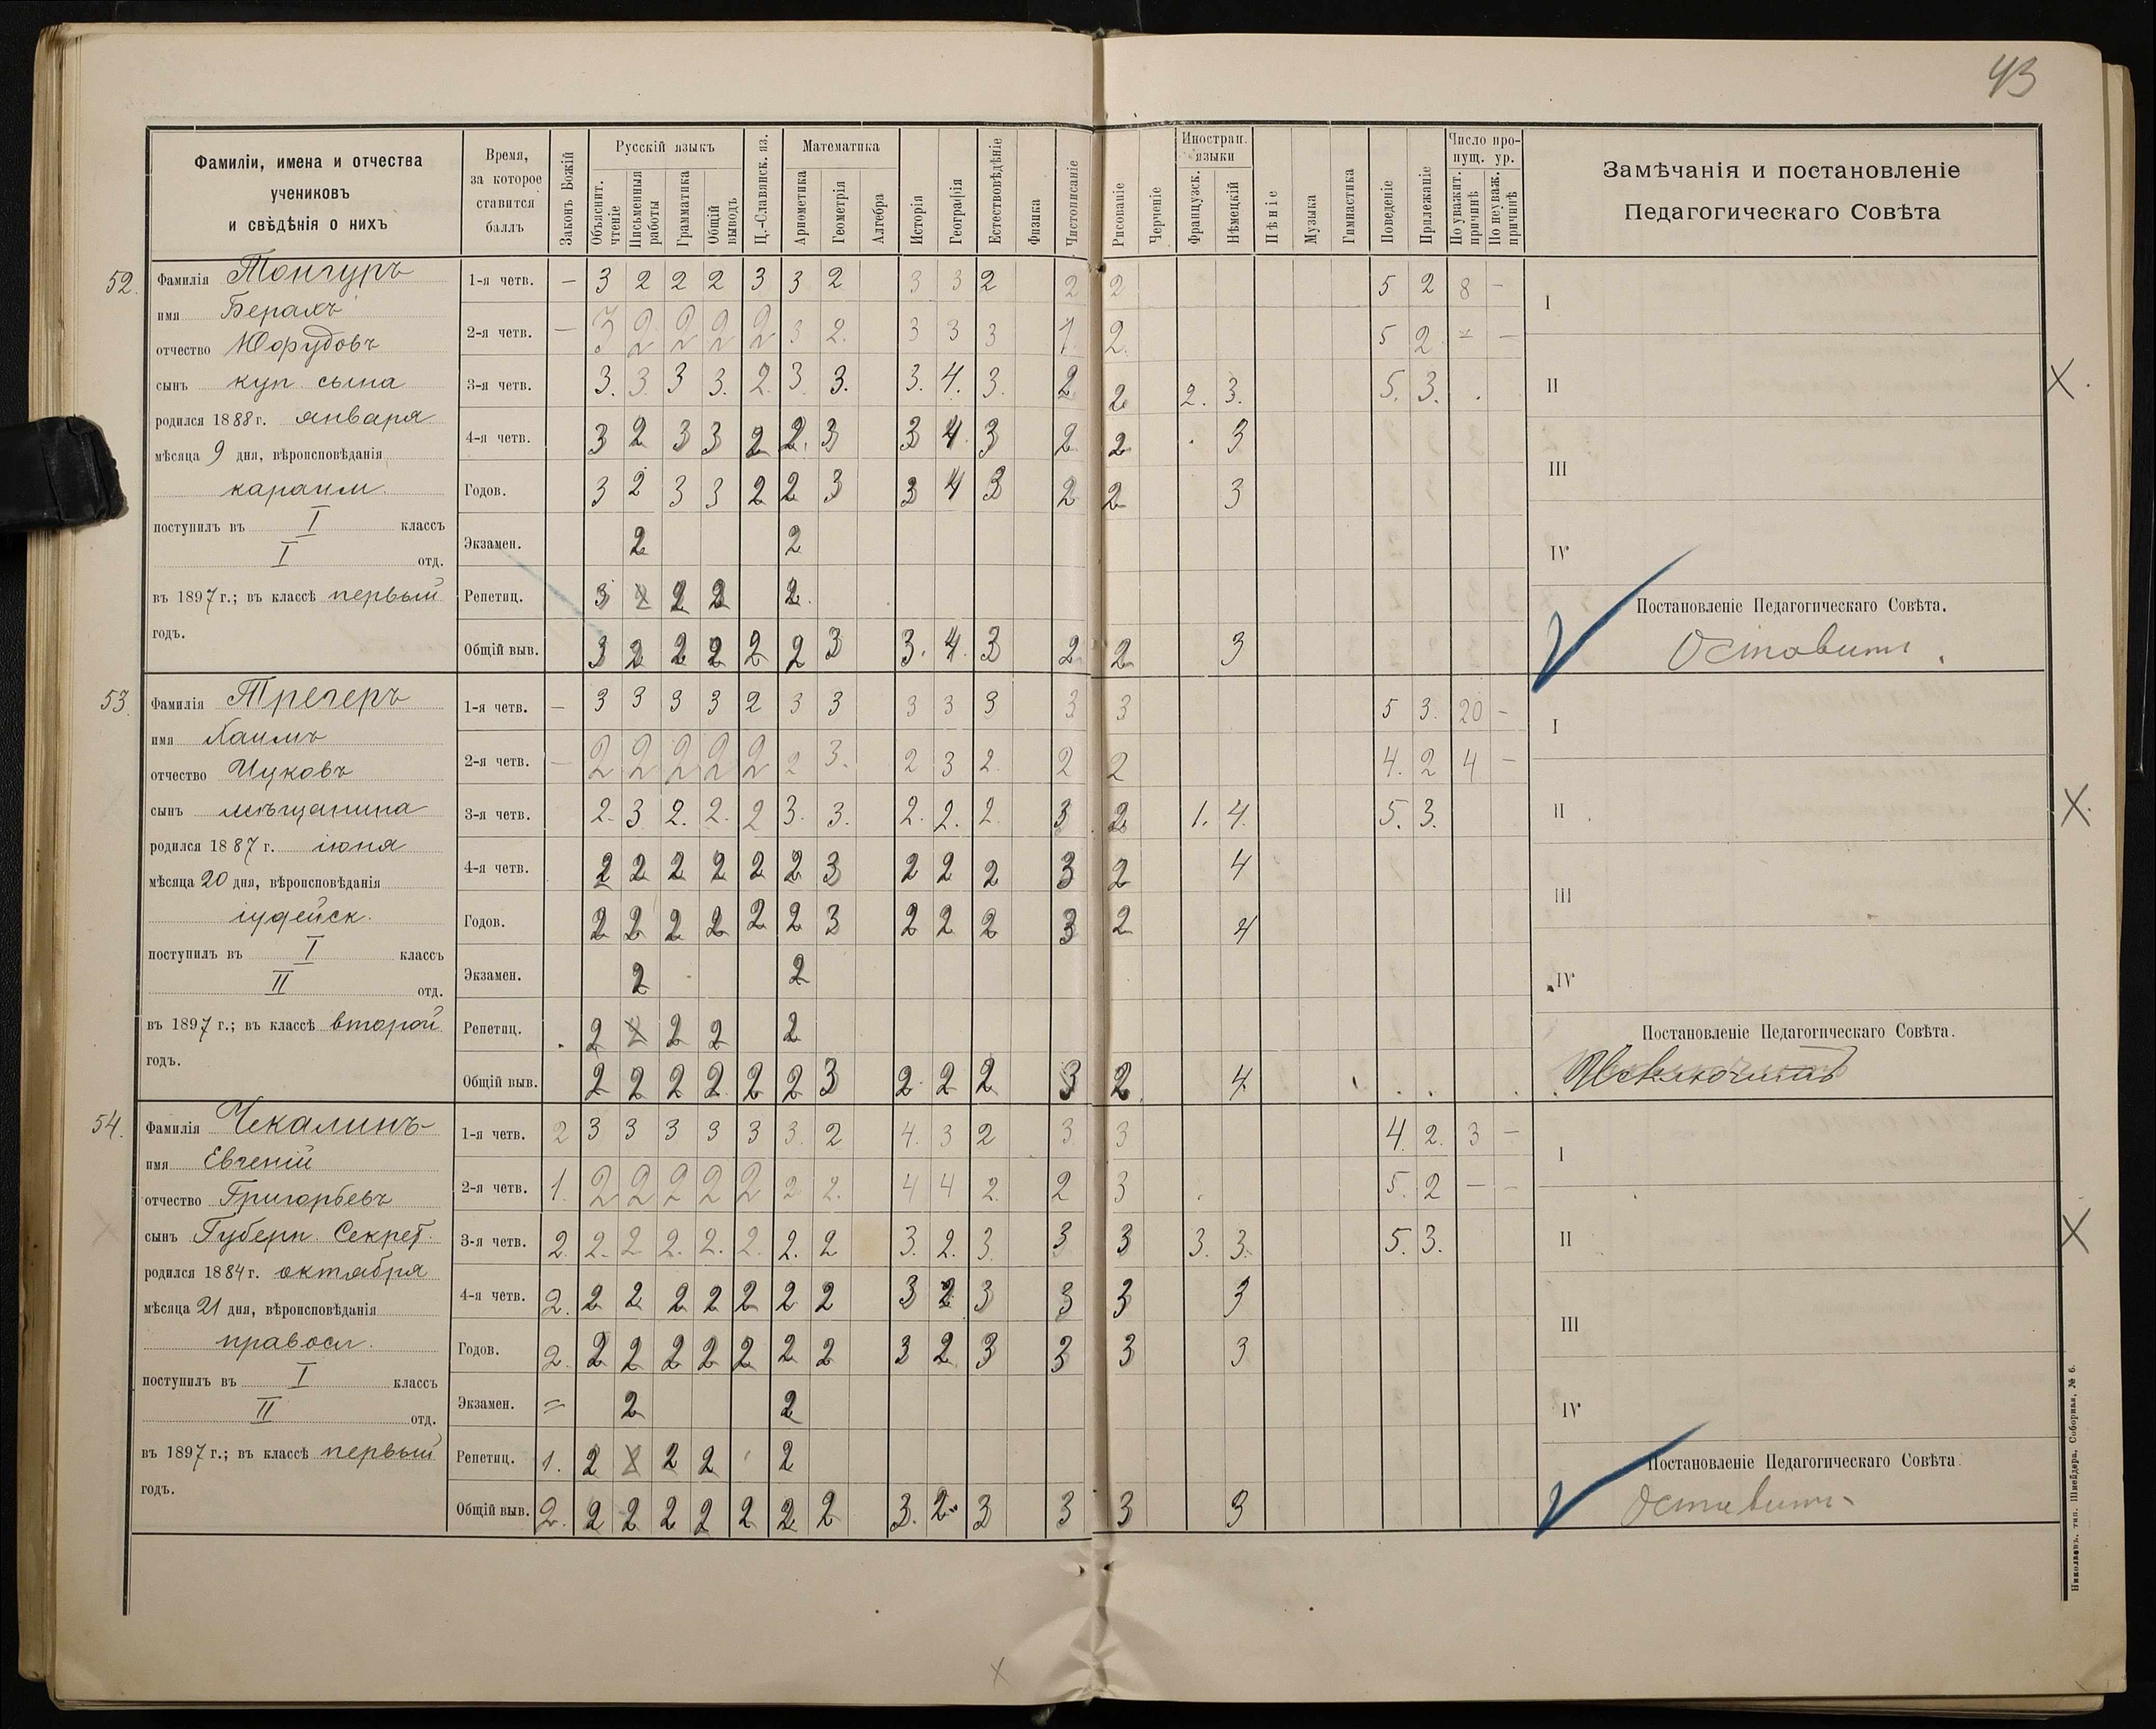 43
Фамиліи, имена и отчества
учениковъ
и свѣдѣнія о нихъ
Время,
за которое
ставится
баллъ
Законъ Божій
Русскій языкъ
Объяснит. чтеніе
Письменныя работы
Грамматика
Общій выводъ
Ц.-Славянск. яз.
Математика
Ариѳметика
Геометрія
Алгебра
Исторія
Географія
Естествовѣдѣніе
Физика
Чистописаніе
Рисованіе
Черченіе
Иностран. языки
Французск.
Нѣмецкій
Пѣніе
Музыка
Гимнастика
Поведеніе
Прилежаніе
Число пропущ. ур.
По уважит. причинѣ
По неуваж. причинѣ
Замѣчанія и постановленіе
Педагогическаго Совѣта
52.
Фамилія Тонгуръ
имя Берахъ
отчество Юфудовъ
сынъ куп. сына
родился 1888 г. января
мѣсяца 9 дня, вѣроисповѣданія
караим.
поступилъ въ I классъ
I отд.
въ 1897 г.; въ классѣ первый
годъ.
1-я четв. — 3 2 2 2 3 3 2 3 3 2 2 2 5 2 8 —
2-я четв. — 3 2 2 2 2 3 2. 3 3 3 1. 2. 5 2 — —
3-я четв. 3. 3. 3 3. 2. 3. 3. 3. 4. 3. 2 2 2. 3. 5. 3.
4-я четв. 3 2 3 3 2 2. 3 3 4. 3 2 2 3
Годов. 3 2 3 3 2 2 3 3 4 3 2 2 3
Экзамен. 2 2
Репетиц. 3 2 2 2 2.
Общій выв. 3 2 2 2 2 2 3 3. 4. 3 2 2 3
I
II
III
IV
Постановленіе Педагогическаго Совѣта.
Оставить.
X.
53.
Фамилія Трегеръ
имя Хаимъ
отчество Ицковъ
сынъ мѣщанина
родился 1887 г. іюня
мѣсяца 20 дня, вѣроисповѣданія
іудейск.
поступилъ въ I классъ
II отд.
въ 1897 г.; въ классѣ второй
годъ.
1-я четв. — 3 3 3 3 2 3 3 3 3 3 3 3 5 3. 20 —
2-я четв. — 2 2 2 2 2 2 3. 2 3 2. 2 2 4. 2 4 —
3-я четв. 2. 3 2. 2. 2 3. 3. 2. 2. 2. 3 2 1. 4. 5. 3.
4-я четв. 2 2 2 2 2 2 3 2 2 2 3 2 4
Годов. 2 2 2 2 2 2 3 2 2 2 3 2 4
Экзамен. 2 2
Репетиц. 2 2 2 2 2
Общій выв. 2 2 2 2 2 2 3 2 2 2 3 2 4
I
II
III
IV
Постановленіе Педагогическаго Совѣта.
Исключить
X.
54.
Фамилія Чекалинъ
имя Евгеній
отчество Григорьевъ
сынъ Губерн. Секрет.
родился 1884 г. октября
мѣсяца 21 дня, вѣроисповѣданія
правосл.
поступилъ въ I классъ
II отд.
въ 1897 г.; въ классѣ первый
годъ.
1-я четв. 2 3 3 3 3 3 3. 2 4. 3 2 3. 3 4. 2. 3 —
2-я четв. 1. 2 2 2 2 2 2 2. 4 4 2. 2 3 5. 2 — —
3-я четв. 2. 2. 2 2. 2. 2. 2. 2 3. 2. 3. 3 3 3. 3. 5. 3.
4-я четв. 2. 2 2 2 2 2 2 2 3 2 3 3 3 3
Годов. 2. 2 2 2 2 2 2 2 3 2 3 3 3 3
Экзамен. = 2 2
Репетиц. 1. 2 2 2 2 2
Общій выв. 2. 2 2 2 2 2 2 2 3. 2 3 3 3 3
I
II
III
IV
Постановленіе Педагогическаго Совѣта.
Оставить
X
Николаевъ, тип. Шнейдера, Соборная, № 6.
X